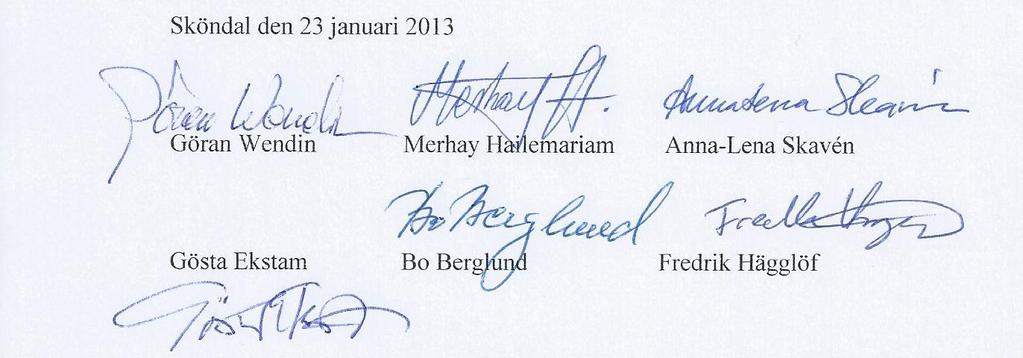 Sköndal den 23 januari 2013
Göran Wendin
Göran Wendin Merhay Hailemariam Anna-Lena Skavén
Bo Berglund
Gösta Ekstam Bo Berglund Fredrik Hägglöf